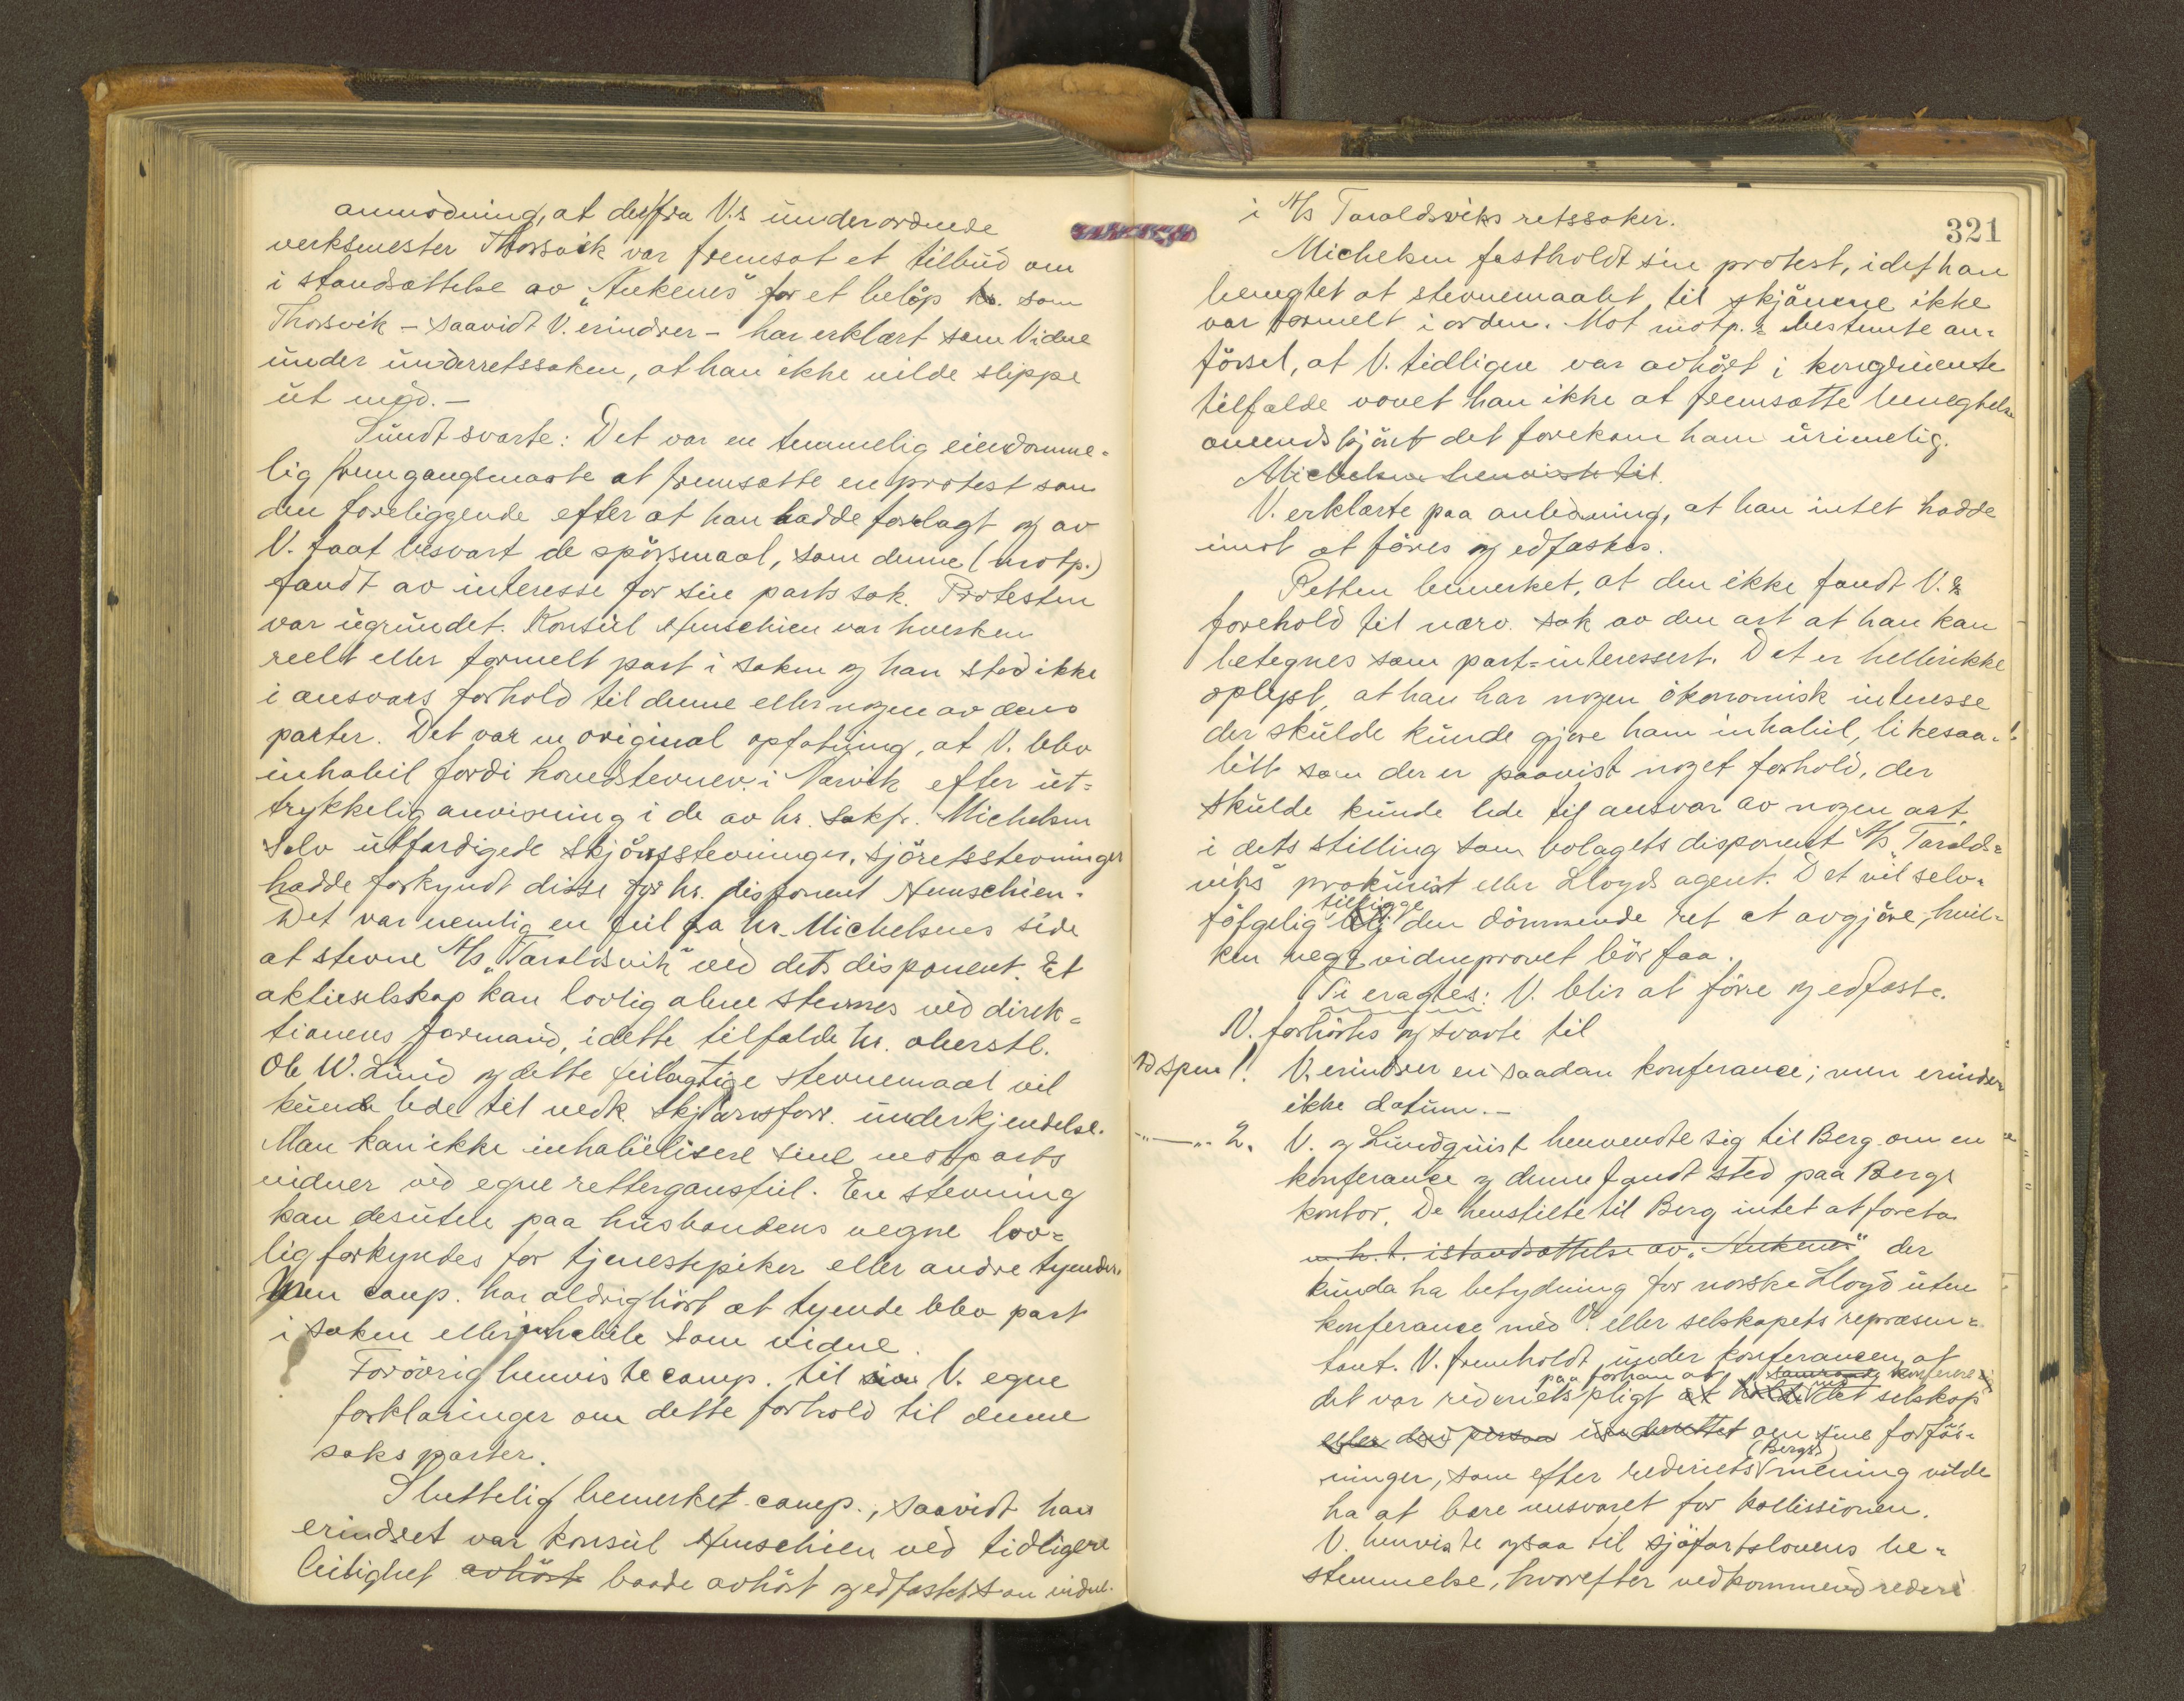 anmodning, at der fra V.s underordnede
verksmester Thorsvik var fremsat et tilbud om
istandsættelse av "Ankenes" for et beløp som
Thorsvik - saavidt V. erindrer - har erklært som Vidne
under underretssaken, at han ikke vilde slippe
ut med. -
Sundt svarte: Det var en temmelig eiendomme-
lig fremgangsmaate at fremsætte en protest som
den foreliggende efter at han hadde forelagt og av
V. faat besvart de spörsmaal, som denne (motp.)
fandt av interesse for sin parts sak. Protesten
var ugrundet. Konsul Aenschien var hverken
reelt eller formelt part i saken og han stod ikke
i ansvars forhold til denne eller nogen av dens
parter. Det var en original opfatning, at V. blev
inhabil fordi hovedstevnev. i Narvik efter ut-
trykkelig anvisning i de av hr. sakf. Michelsen
selv utfærdigede skjönsstevninger, sjöretsstevninger
hadde forkyndt disse for hr. disponent Aenschien.
Det var nemlig en feil fra hr. Michelsens side
at stevne A/s "Taraldsvik" ved dets disponent. Et
aktieselskap kan lovlig alene stevnes ved direk-
tionens formand, i dette tilfælde hr. oberstl.
Ole W. Lund og dette feilagtige stevnemaal vil
kunde lede til vedk. skjønsforr. underkjendelse.
Man kan ikke inhabilisere sine motparts
vidner ved egne rettergangsfeil. En stevning
kan desuten paa husbondens vegne lov-
lig forkyndes for tjenestepiker eller andre tyender.
Men comp. har aldrig hört at tyende blev part
i saken eller inhabile som vidne.
Forövrig henviste comp. til V. egne
forklaringer om dette forhold til denne
saks parter.
Sluttelig bemerket comp., saavidt han
erindret var konsul Aenschien ved tidligere
leilighet avhört baade avhört og edfæstet som vidne.
321
i A/s Taraldsviks retssaker.
Michelsen fastholdt sin protest, idet han
benegtet at stevnemaalet til skjönene ikke
var formelt i orden. Mot motp.s bestemte an-
försel, at V. tidligere var avhört i kongruente
tilfælde vovet han ikke at fremsætte benegtelse
omendskjönt det forekom ham urimelig.
Michelsen henviste til.
V. erklærte paa anledning, at han intet hadde
imot at föres og edfæstes.
Retten bemerket, at den ikke fandt V.s
forehold til nærv. sak av den art at han kan
betegnes som part-interessert. Det er heller ikke
oplyst, at han har nogen ökonomisk interesse
der skulde kunde gjøre ham inhabil, likesaa-
litt som der er paavist noget forhold, der
skulde kunde lede til ansvar av nogen art
i dets stilling som bolagets disponent A/s "Taralds-
viks" prokurist eller Lloyds agent. Det vil selv-
fölgelig tilligge den dömmende ret at avgjöre, hvil-
ken vegt vidneprovet bör faa.
Ti eragtes: V. blir at före og edfæste.
V. forhörtes og svarte til
Ad spm 1. V. erindrer en saadan konferance; men erindrer
ikke datum. -
-"- 2. V. og Lundquist henvendte sig til Berg om en
konferance og denne fandt sted paa Bergs
kontor. De henstilte til Berg intet at foreta
m.h.t. istandsættelse av "Ankenes" der
kunde ha betydning for norske Lloyd uten
konferance med V. eller selskapets repræsen-
tant. V. fremholdt under konferancen, at
paa forhaand at samraade konferere
det var rederiets pligt at med det selskap
eller den person underrettet om sine forföi-
(Bergs)
ninger, som efter rederiets mening vilde
ha at bære ansvaret for kollissionen.
V. henviste ogsaa til sjöfartslovens be-
stemmelse, hvorefter vedkommend rederi